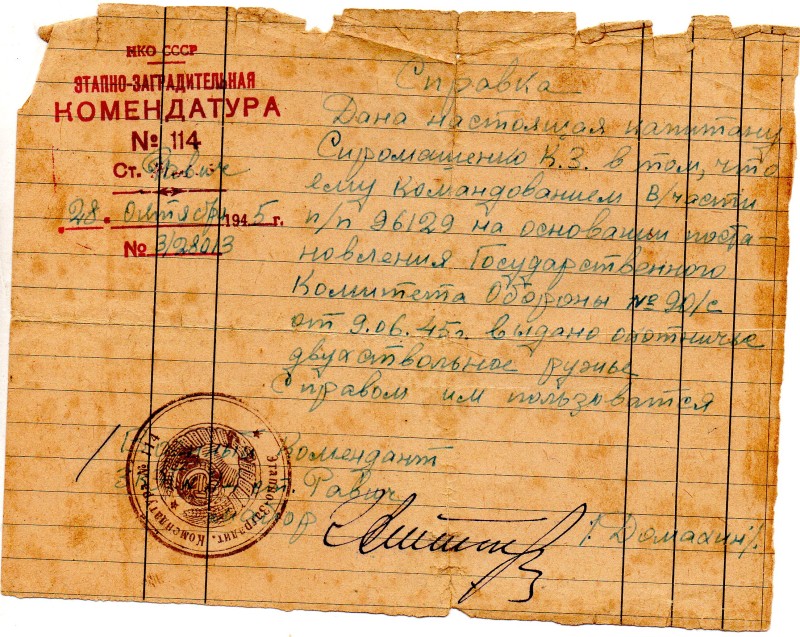 НКО СССР
ЭТАПНО-ЗАГРАДИТЕЛЬНАЯ
КОМЕНДАТУРА
№ 114
Ст. Равич
28. октября 1945 г.
№ 3/28013
Справка
Дана настоящая капитану
Сиромашенко К.З. в том, что
ему командованием в/части
п/п 96129 на основании поста-
новления Государственного
Комитета Обороны № 90/с
от 9.06.45г. выдано охотничье
двухствольное ружье
С правом им пользоватся
Комендант
Равич
/Домахин/.
Этапно-Заградит. Комендатура № 114